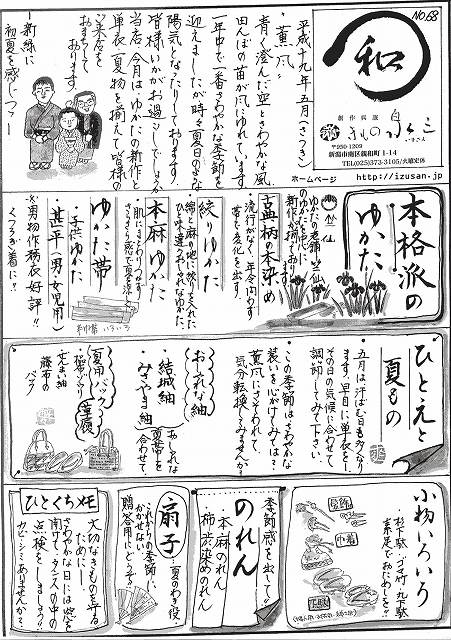 No.68
和
創作呉服
〒950-1209
新潟市南区親和町1-14
TEL(025)373-3105/火曜定休
ホームページ http://izusan.jp
平成十九年五月(さつき)
薫風
青く澄んだ空とさわやかな風、
田んぼの苗が風にゆれています。
一年中で一番さわやかな季節を
迎えましたが時々夏日のような
陽気となったりしております。
皆様いかがお過ごしでしょうか
当店、今月は、ゆかたの新作と
単衣、夏物を揃えて皆様の
ご来店を
お待ちして
おります。
新緑に
初夏を感じつつ
本格派の
ゆかた
竺仙
ゆかたの老舗・竺仙
のゆかたを中心に
新作が揃っております
古典柄の本染め
流行がなく年令問わず
帯で変化が出ます。
絞りゆかた
綿と麻の地に絞りを入れた
ひと味違うおしゃれなゆかた。
本麻ゆかた
ゆかた帯
半巾帯いろいろ
・子供ゆかた
・甚平(男・女児用)
※男物作務衣好評!!
くつろぎ着に!!
ひとえと
夏もの
五月は、汗ばむ日も多くなり
ます。早目に単衣を…
その日の気候に合わせて
調節してみて下さい。
・この季節はさわやかな
装いを心がけてみては?
薫風にさそわれて
気分転換してみませんか?
おしゃれな紬
・結城紬
・みさやま紬
おしゃれな
夏帯を
合わせて。
夏用バッグ
草履
藤布の
バッグ
小物いろいろ
・杉下駄・ゴマ竹・丸駄
素足でおためしを!!
髪飾
巾着
下駄
季節感を出して!
のれん
本麻のれん
柿渋染めのれん
扇子
夏のお供へ
これからの季節に
かかせない
贈答用にいかが?
ひとくちメモ
大切なきものを守る
ために…
さわやかな日には窓を
開けて、タンスの中の
点検をしましょう!!
カビ・シミありませんか?